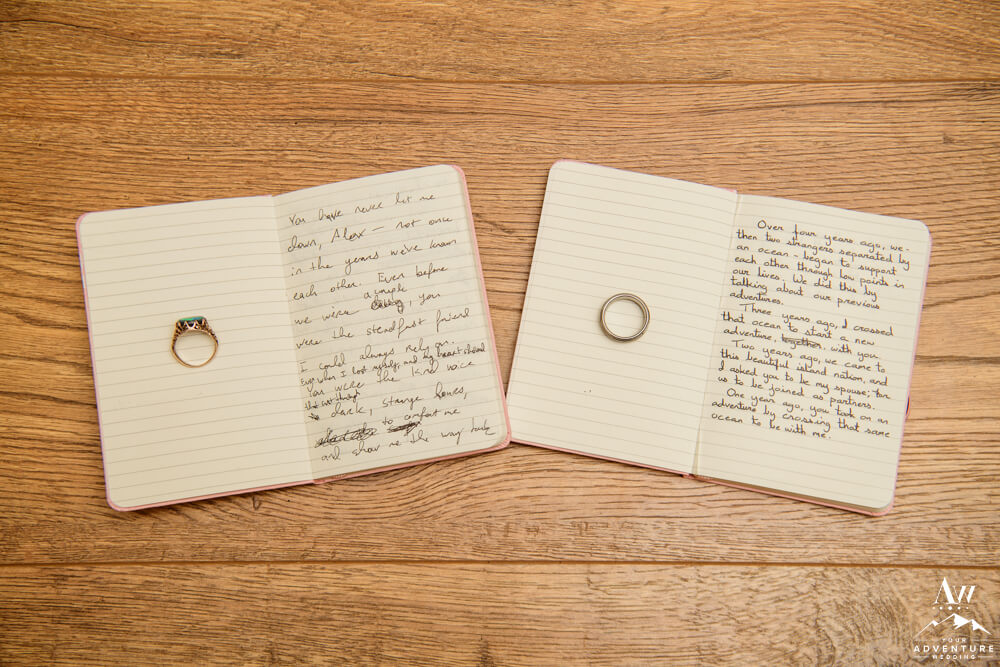 You have never let me
down, Alex — not once
in the years we've known
each other. Even before
we were a couple, you
were the steadfast friend
I could always rely on.
Even when I lost myself, and my heart ached
You were the kind voice
that cut through
dark, strange times,
to comfort me
and show me the way back
Over four years ago, we -
then two strangers separated by
an ocean - began to support
each other through low points in
our lives. We did this by
talking about our previous
adventures.
Three years ago, I crossed
that ocean to start a new
adventure, together with you.
Two years ago, we came to
this beautiful island nation, and
I asked you to be my spouse; for
us to be joined as partners.
One year ago, you took on an
adventure by crossing that same
ocean to be with me.
AW
YOUR
ADVENTURE
WEDDING